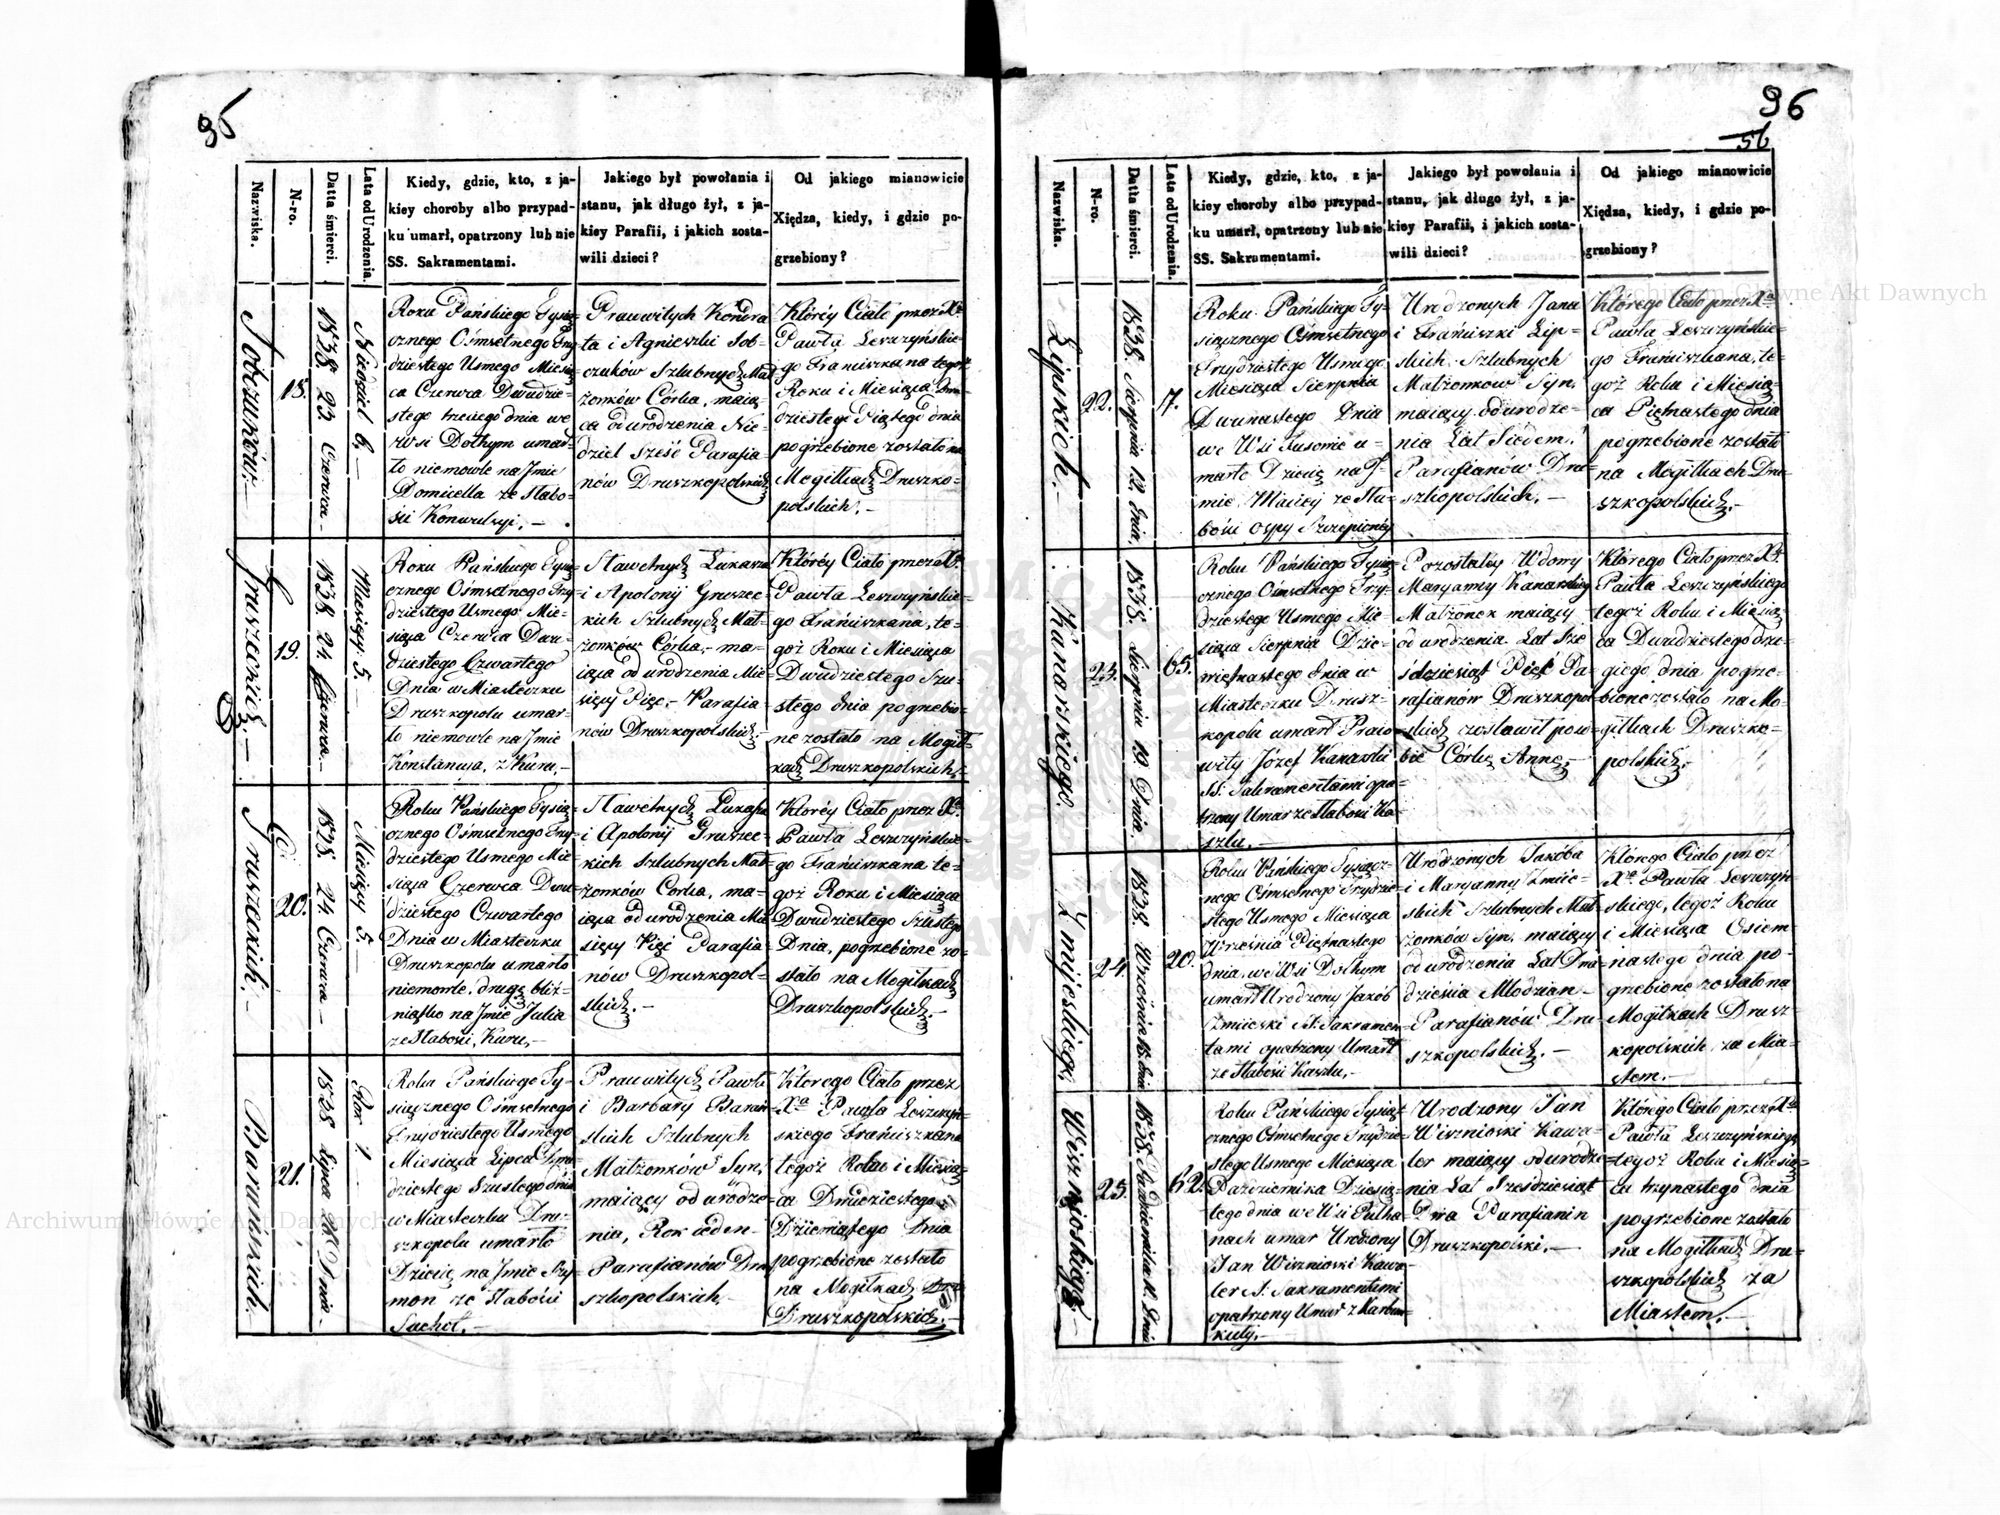 96
Nazwiska.
N-ro.
Datta śmierci.
Lata od Urodzenia.
Kiedy, gdzie, kto, z ja-
kiey choroby albo przypad-
ku umarł, opatrzony lub nie
SS. Sakramentami.
Jakiego był powołania i
stanu, jak długo żył, z ja-
kiey Parafii, i jakich zosta-
wili dzieci?
Od jakiego mianowicie
Xiędza, kiedy, i gdzie po-
grzebiony?
Sobczuków.
18.
1838. 23 Czerwca
Niedziel 6.
Roku Pańskiego Tysią=
cznego Ośmsetnego Trzy
dziestego Usmego Miesią
ca Czerwca Dwudzie=
stego trzeciego dnia we
wsi Dołhym umar=
ło niemowle na Jmie
Domicella ze słabo=
ści Konwulsyi.
Prawwitych Kondra
ta i Agnieszki Sob=
czuków Szlubnych Mał
żonków Córka, maią=
ca od urodzenia Nie=
dziel sześć Parafia=
nów Druszkopolskich
Któréy Ciało przez Xa
Pawła Leszczyńskie=
go Franciszkana tegoż
Roku i Miesiąca Dwu
dziestego Piątego dnia
pogrzebione zostało na
Mogiłkach Druszko=
polskich.
Gruszeckich.
19.
1838. 24. Czerwca.
Miesięcy 5.
Roku Pańskiego Tysią=
cznego Ośmsetnego Trzy
dziestego Usmego Mie=
siąca Czerwca Dwu=
dziestego Czwartego
Dnia w Miasteczku
Druszkopolu umar=
ło niemowle na Jmie
Konstancya, z Kuru.
Sławetnych Łukasza
i Apolonij Gruszec=
kich Szlubnych Mał=
żonków Córka, ma=
iąca od urodzenia Mie
sięcy Pięć. Parafia=
nów Druszkopolskich.
Któréy Ciało przez Xa.
Pawła Leszczyńskie=
go Franciszkana, te=
goż Roku i Miesiąca
Dwudziestego Szu=
stego dnia pogrzebio=
ne zostało na Mogił=
kach Druszkopolskich.
Gruszeckich.
20.
1838. 24. Czerwca
Miesięcy 5.
Roku Pańskiego Tysią=
cznego Ośmsetnego Trzy
dziestego Usmego Mie=
siąca Czerwca Dwu
dziestego Czwartego
Dnia w Miasteczku
Druszkopolu umarło
niemowle, drugę bliź=
niątko na Jmie Julia
ze słabości, Kuru.
Sławetnych Łukasza
i Apolonij Gruszec=
kich Szlubnych Mał=
żonków Córka, ma=
iąca od urodzenia Mie
sięcy Pięć Parafia=
nów Druszkopol=
skich.
Któréy Ciało przez Xa.
Pawła Leszczyńskie=
go Franciszkana te=
goż Roku i Miesiąca
Dwudziestego Szustego
Dnia, pogrzebione zo=
stało na Mogiłkach
Druszkopolskich.
Barańskich.
21.
1838 Lipca 26 Dnia.
Rok 1.
Roku Pańskiego Ty=
siącznego Ośmsetnego
Trzydziestego Usmego
Miesiąca Lipca Dwu
dziestego Szustego dnia
w Miasteczku Dru=
szkopolu umarło
Dziecię na Jmie Szy=
mon ze słabości
Suchot.
Prawwitych Pawła
i Barbary Barań=
skich Szlubnych
Małżonków Syn,
maiący od urodze=
nia, Rok ieden
Parafianów Dru
szkopolskich,
Którego Ciało przez
Xa Pawła Leszczyń=
skiego Franciszkana
tegoż Roku i Miesią=
ca Dwudziestego
Dziewiątego Dnia
pogrzebione zostało
na Mogiłkach
Druszkopolskich.
96
56
Nazwiska.
N-ro.
Datta śmierci.
Lata od Urodzenia.
Kiedy, gdzie, kto, z ja-
kiey choroby albo przypad-
ku umarł, opatrzony lub nie
SS. Sakramentami.
Jakiego był powołania i
stanu, jak długo żył, z ja-
kiey Parafii, i jakich zosta-
wili dzieci?
Od jakiego mianowicie
Xiędza, kiedy, i gdzie po-
grzebiony?
Lipskich.
22.
1838. Sierpnia 12. dnia
7.
Roku Pańskiego Ty=
siącznego Ośmsetnego
Trzydziestego Usmego
Miesiąca Sierpnia
Dwunastego Dnia
we Wsi u=
marło Dziecię na J=
mie Maciey ze sła=
bości ospy Szczepioney
Urodzonych Jana
i Franciszki Lip=
skich Szlubnych
Małżonków Syn,
maiący od urodze=
nia Lat Siedem.
Parafianów Dru
szkopolskich.
Którego Ciało przez Xa
Pawła Leszczyńskie=
go Franciszkana, te=
goż Roku i Miesią=
ca Piętnastego dnia
pogrzebione zostało
na Mogiłkach Dru=
szkopolskich.
Kanarskiego.
23.
1838. Sierpnia 19. Dnia.
65.
Roku Pańskiego Tysią=
cznego Ośmsetnego Trzy=
dziestego Usmego Mie
siąca Sierpnia Dzie=
więtnastego dnia w
Miasteczku Drusz=
kopolu umarł Prawo=
wity Józef Kanarski
SS. Sakramentami opa=
trzony Umar ze słabości Ka=
szlu.
Pozostałey Wdowy
Maryanny Kanarskiey
Małżonek maiący
od urodzenia Lat Sze
śdziesiąt Pięć Pa=
rafianów Druszkopol
skich zostawił pow=
bie Córkę Annę.
Którego Ciało przez Xa.
Pawła Leszczyńskiego
tegoż Roku i Miesią
ca Dwudziestego dru=
giego dnia pogrze=
bione zostało na Mo=
giłkach Druszko=
polskich.
Żmijewskiego.
24.
1838. Września 15 dnia
20.
Roku Pańskiego Tysiącz=
nego Ośmsetnego Trzydzie
stego Usmego Miesiąca
Września Piętnastego
dnia, we Wsi Dołhym
umarł Urodzony Jakób
Żmiiewski SS. Sakramen=
tami opatrzony Umarł
ze słabości Kaszlu.
Urodzonych Jakóba
i Maryanny Żmiie=
wskich Szlubnych Mał=
żonków Syn, maiący
od urodzenia Lat Dwa=
dzieścia Młodzian
Parafianów Dru=
szkopolskich.
Którego Ciało przez
Xa Pawła Leszczyń=
skiego, tegoż Roku
i Miesiąca Osiem=
nastego dnia po=
grzebione zostało na
Mogiłkach Drusz=
kopolskich za Mia=
stem.
Wiszniowskiego
25.
1838. Października 10. Dnia
62.
Roku Pańskiego Tysią=
cznego Ośmsetnego Trzydzie=
stego Usmego Miesiąca
Października Dziesią=
tego dnia we Wsi Pulha=
nach umar Urodzony
Jan Wiszniowski Kawa=
ler SS. Sakramentami
opatrzony Umar z Karbun=
kuły.
Urodzony Jan
Wiszniowski Kawa=
ler maiący od urodze=
nia Lat Sześdziesiąt
Dwa Parafianin
Druszkopolski.
Którego Ciało przez Xa
Pawła Leszczyńskiego
tegoż Roku i Miesią=
ca trzynastego dnia
pogrzebione zostało
na Mogiłkach Dru=
szkopolskich za
Miastem.
Archiwum Główne Akt Dawnych
Archiwum Główne Akt Dawnych